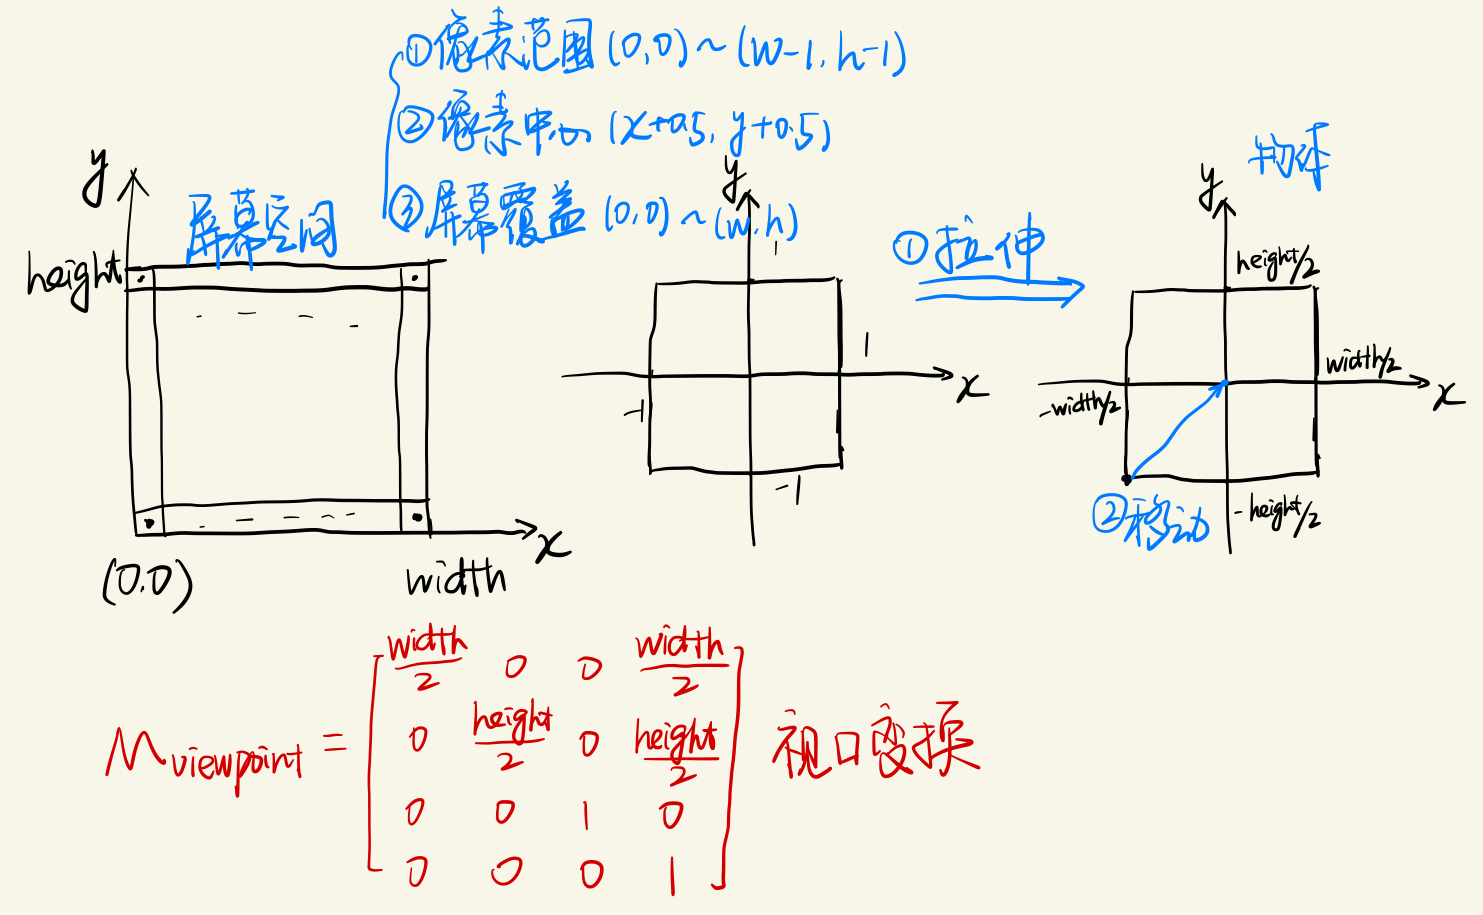 ①像素范围 (0,0) ~ (w-1, h-1)
②像素中心 (x+0.5, y+0.5)
③屏幕覆盖 (0,0) ~ (w,h)
屏幕空间
y
height
(0,0)
width
x
y
1
1
-1
-1
x
①拉伸
物体
y
height/2
width/2
-width/2
-height/2
x
②移动
M viewpoint = [ width/2 0 0 width/2
0 height/2 0 height/2
0 0 1 0
0 0 0 1 ]
视口变换